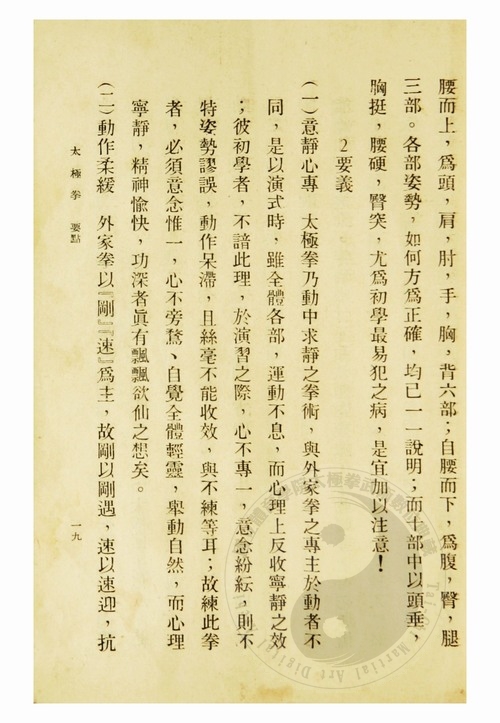 腰而上，爲頭，肩，肘，手，胸，背六部；自腰而下，爲腹，臀，腿
三部。各部姿勢，如何方爲正確，均已一一說明；而十部中以頭垂，
胸挺，腰硬，臀突，尤爲初學最易犯之病，是宜加以注意！
2要義
（一）意靜心專　太極拳乃動中求靜之拳術，與外家拳之專主於動者不
同，是以演式時，雖全體各部，運動不息，而心理上反收寧靜之效
；彼初學者，不諳此理，於演習之際，心不專一，意念紛紜，則不
特姿勢謬誤，動作呆滯，且絲毫不能收效，與不練等耳；故練此拳
者，必須意念惟一，心不旁騖、自覺全體輕靈，舉動自然，而心理
寧靜，精神愉快，功深者眞有飄飄欲仙之想矣。
（二）動作柔緩　外家拳以『剛』『速』爲主，故剛以剛遇，速以速迎，抗
太極拳　要點
一九